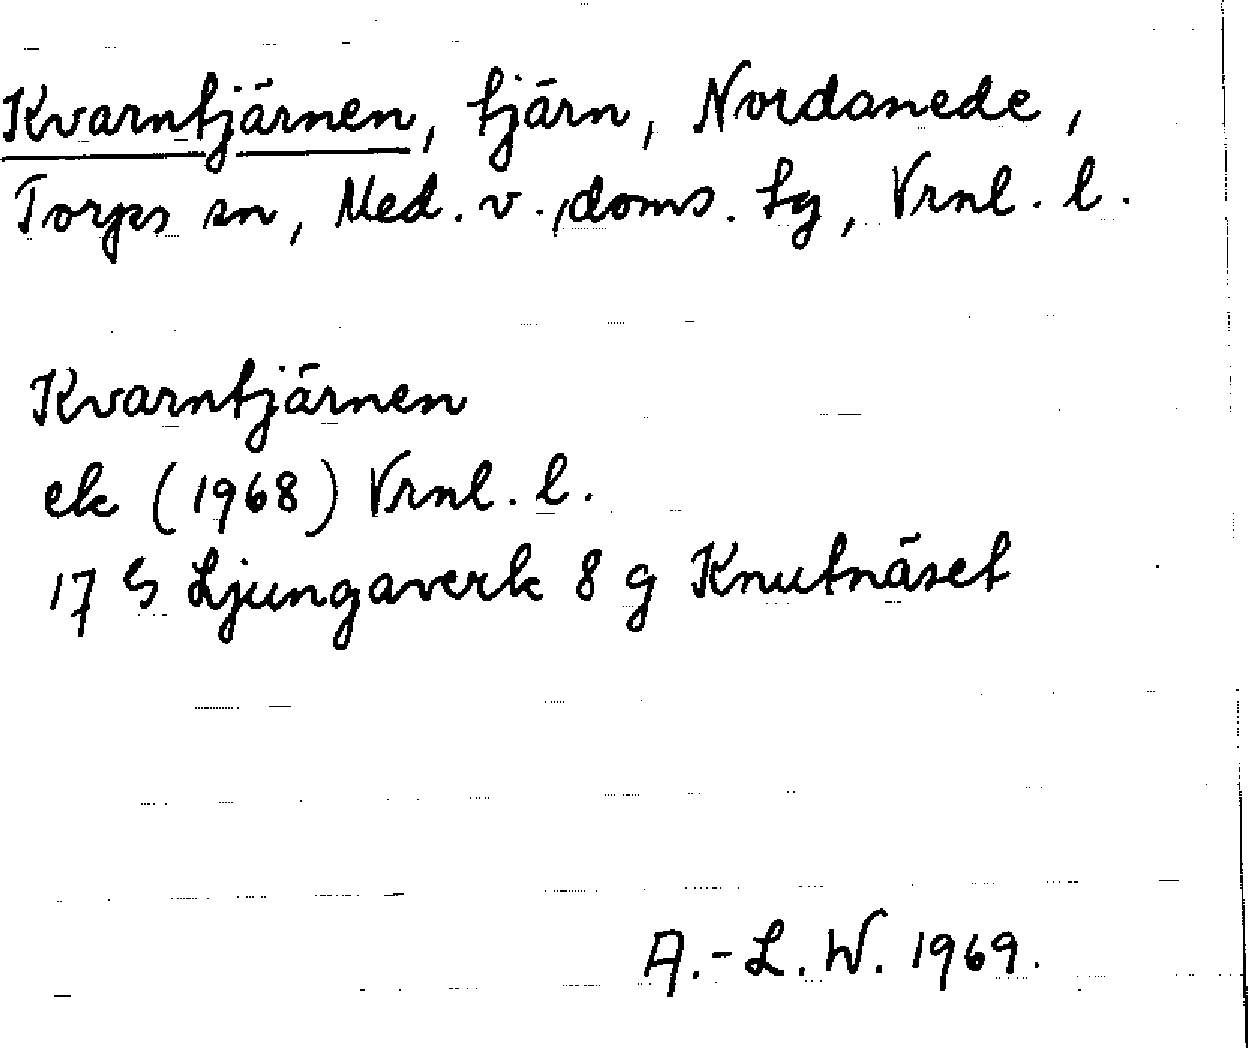 Kvarntjärnen, tjärn, Nordanede,
Torps sn, Med. v. doms. tg, Vrnl. l.
Kvarntjärnen
ek (1968) Vrnl. l.
17 G Ljungaverk 8 g Knutnäset
A.-L. W. 1969.